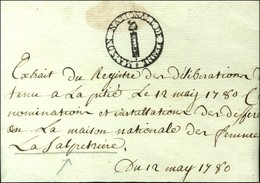 MAISON NATIONALE DE FEMME
Extrait du Registre des déliberations
tenu a La pitié Le 12 may 1780
nominations et installations des differe
en La maison nationale des femmes
La Salpetriere
Du 12 may 1780